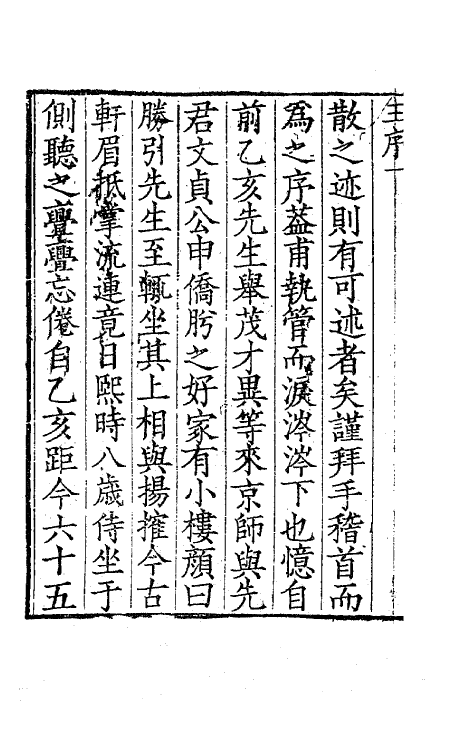 散之迹則有可述者矣謹拜手稽首而
為之序葢甫執管而淚涔涔下也憶自
前乙亥先生舉茂才異等來京師與先
君文貞公申僑肸之好家有小樓顔曰
勝引先生至輒坐其上相與揚搉今古
軒眉抵掌流連竟日熙時八歲侍坐于
側聽之亹亹忘倦自乙亥距今六十五